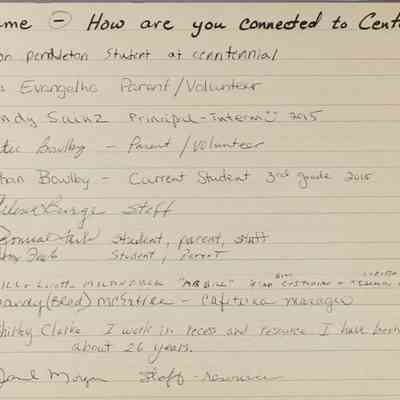 ame - How are you connected to Cent
on pendleton Student at cenntennial
s Evangelho Parent/Volunteer
ndy Sainz Principal-Interim 2015
Bowlby - Parent/Volunteer
than Bowlby - Current Student 3rd grade 2015
Burge Staff
student, parent, staff
Student, Parent
"MR BILL" CUSTODIAN
andy (Brad) McEntire - Cafiteria manager
Shirley Clarke I work in recess and resource I have been
about 26 years.
Morgan Staff - resource